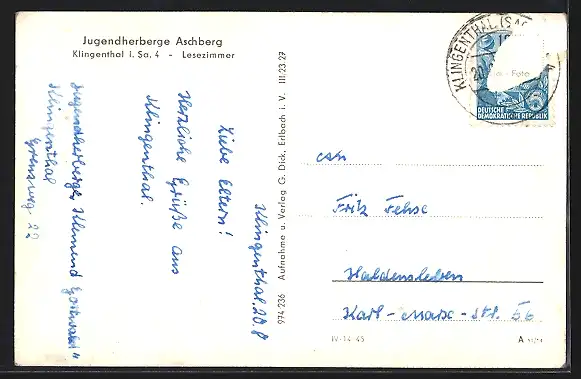 Jugendherberge Aschberg
Klingenthal i. Sa. 4 - Lesezimmer
Klingenthal, 20.8
Liebe Eltern!
Herzliche Grüße aus
Klingenthal.
Jugendherberge „Klement Gottwald"
Klingenthal
Grenzweg 22
974 236 Aufnahme u. Verlag G. Dick, Erlbach i. V. III.23 27
KLINGENTHAL (SA
20
DEUTSCHE
DEMOKRATISCHE REPUBLIK
5
Foto
an
Fritz Fehse
Haldensleben
Karl-Marx-Str. 56
IV-14-45
A